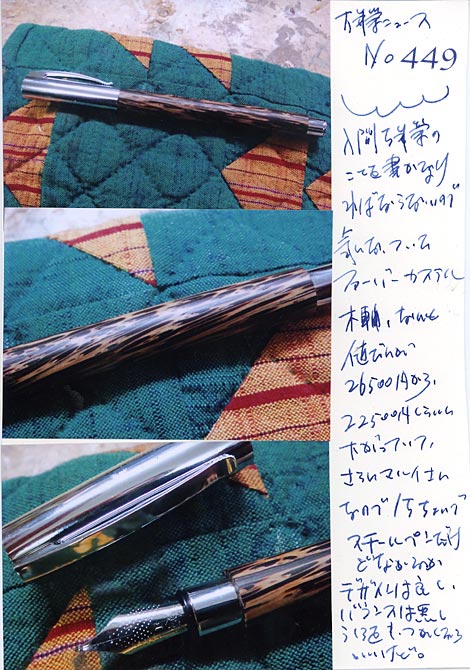 万年筆ニュース
No 449
入門万年筆の
ことを書かなけ
ればならないので
気になっている
ファーバーカステル
木軸、なんと
値だんが
26500円から、
22500円くらいに
下がっていて、
さらにマルイさん
なので
スチールペンだけ
どなかなか
デザインは良く、
バランスは悪し
いいけど。